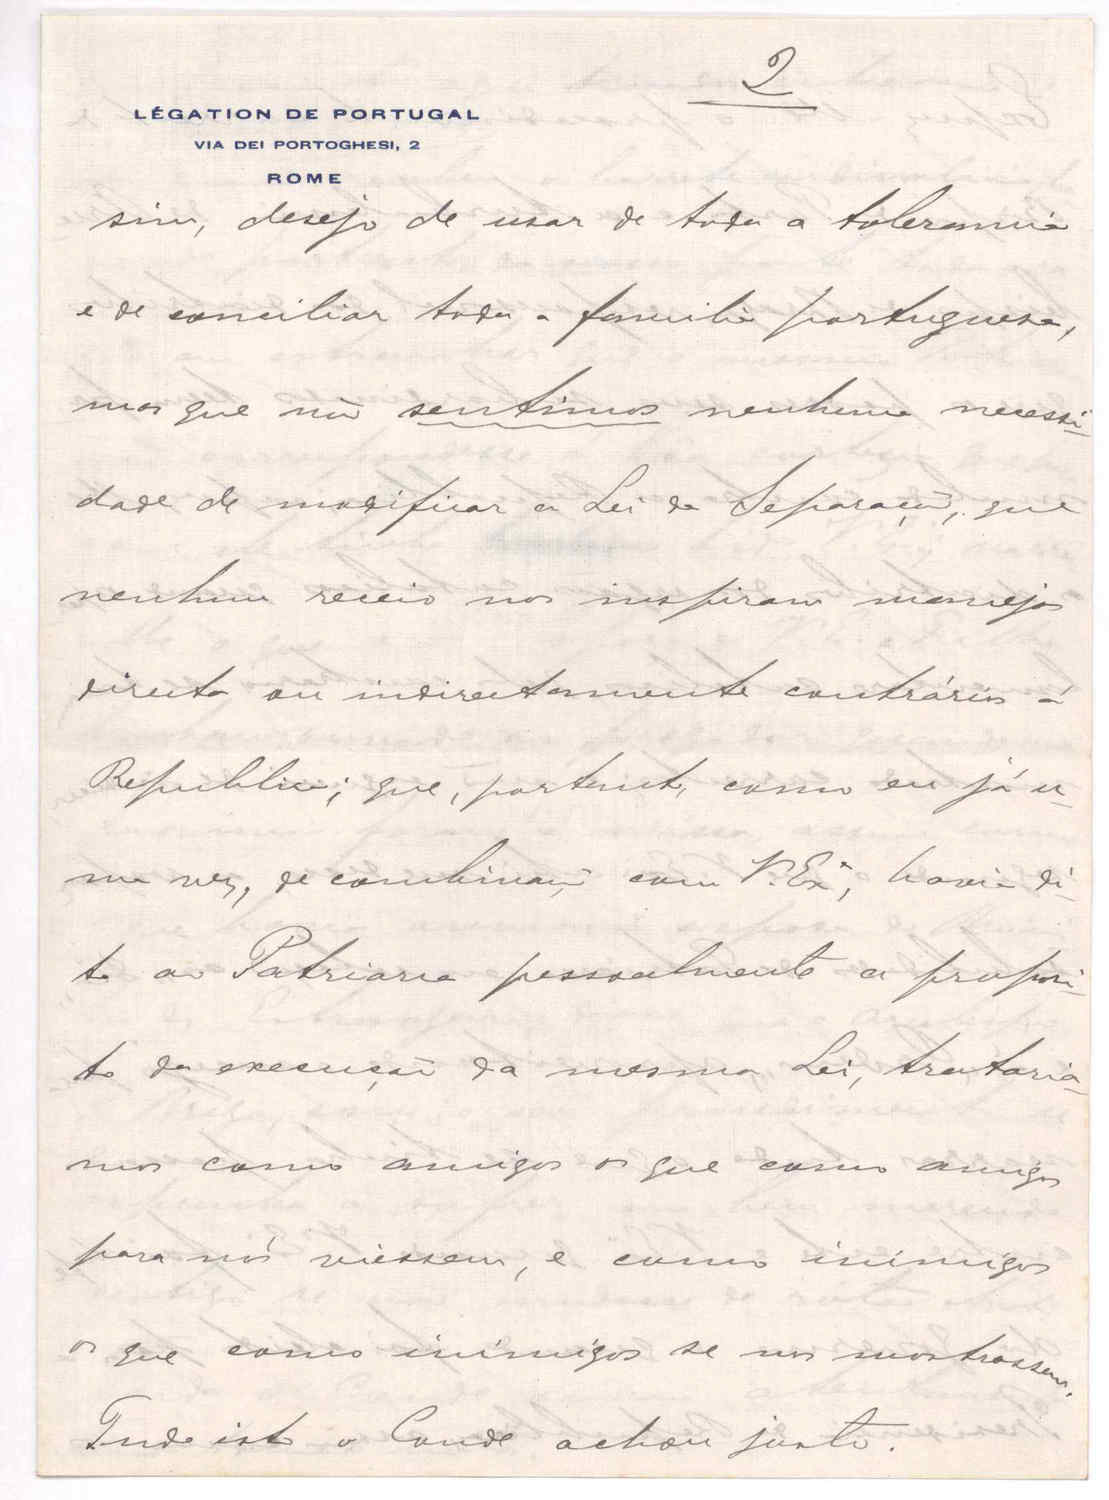 2
LÉGATION DE PORTUGAL
VIA DEI PORTOGHESI, 2
ROME
sim, desejo de usar de toda a tolerancia
e de conciliar toda a familia portuguesa,
mas que não sentimos nenhuma necessi-
dade de modificar a Lei da Separação, que
nenhum receio nos inspiram manejos
directa ou indirectamente contrários á
Republica; que, portanto, como eu já u-
ma vez, de combinação com V. Exª, havia di-
to ao Patriarca pessoalmente a proposi-
to da execução da mesma Lei, trataria-
mos como amigos os que como amigos
para nós viessem, e como inimigos
os que como inimigos se nos mostrassem.
Tudo isto o Conde achou justo.